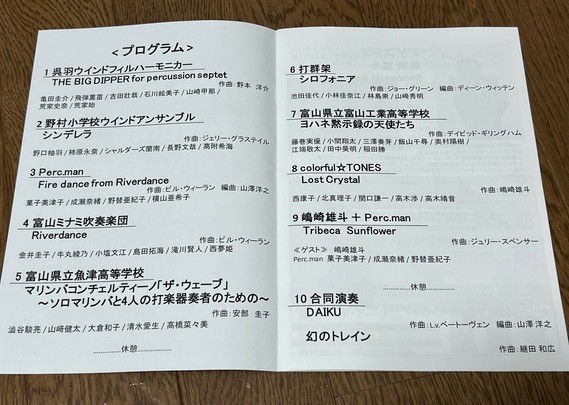 ＜プログラム＞
1 呉羽ウインドフィルハーモニカー
THE BIG DIPPER for percussion septet
作曲：野本 洋介
亀田圭介 / 飛弾薫苗 / 吉田壮哉 / 石川絵美子 / 山崎甲那 /
荒家史奈 / 荒家始
2 野村小学校ウインドアンサンブル
シンデレラ
作曲：ジェリー・グラステイル
野口柚羽 / 柿原永奈 / シャルダーズ蘭南 / 長野文哉 / 高附希海
3 Perc.man
Fire dance from Riverdance
作曲：ビル・ウィーラン 編曲：山澤洋之
菓子美津子 / 成瀬奈緒 / 野替亜紀子 / 横山亜希子
4 富山ミナミ吹奏楽団
Riverdance
作曲：ビル・ウィーラン
金井圭子 / 牛丸綾乃 / 小塩文江 / 島田拓海 / 滝川賢人 / 西夢姫
5 富山県立魚津高等学校
マリンバコンチェルティーノ「ザ・ウェーブ」
～ソロマリンバと4人の打楽器奏者のための～
作曲：安部 圭子
澁谷駿亮 / 山崎健太 / 大倉和子 / 清水愛生 / 高橋菜々美
……………休憩………………
6 打群架
シロフォニア
作曲：ジョー・グリーン 編曲：ディーン・ウィッテン
池田佳代 / 小林佳奈江 / 林島崇 / 山崎秀明
7 富山県立富山工業高等学校
ヨハネ黙示録の天使たち
作曲：デイビッド・ギリングハム
藤巻実優 / 小間翔太 / 三澤奏芽 / 飯山千尋 / 奥村陽樹 /
江端敬太 / 田中昊明 / 稲田勝
8 colorful☆TONES
Lost Crystal
作曲：嶋崎雄斗
西康子 / 北真理子 / 関口謙一 / 高木渉 / 高木晴音
9 嶋崎雄斗 ＋ Perc.man
Tribeca Sunflower
作曲：ジュリー・スペンサー
≪ゲスト≫ 嶋崎雄斗
Perc.man 菓子美津子 / 成瀬奈緒 / 野替亜紀子
……………休憩………………
10 合同演奏
DAIKU
作曲：L.v.ベートーヴェン 編曲：山澤 洋之
幻のトレイン
作曲：継田 和広